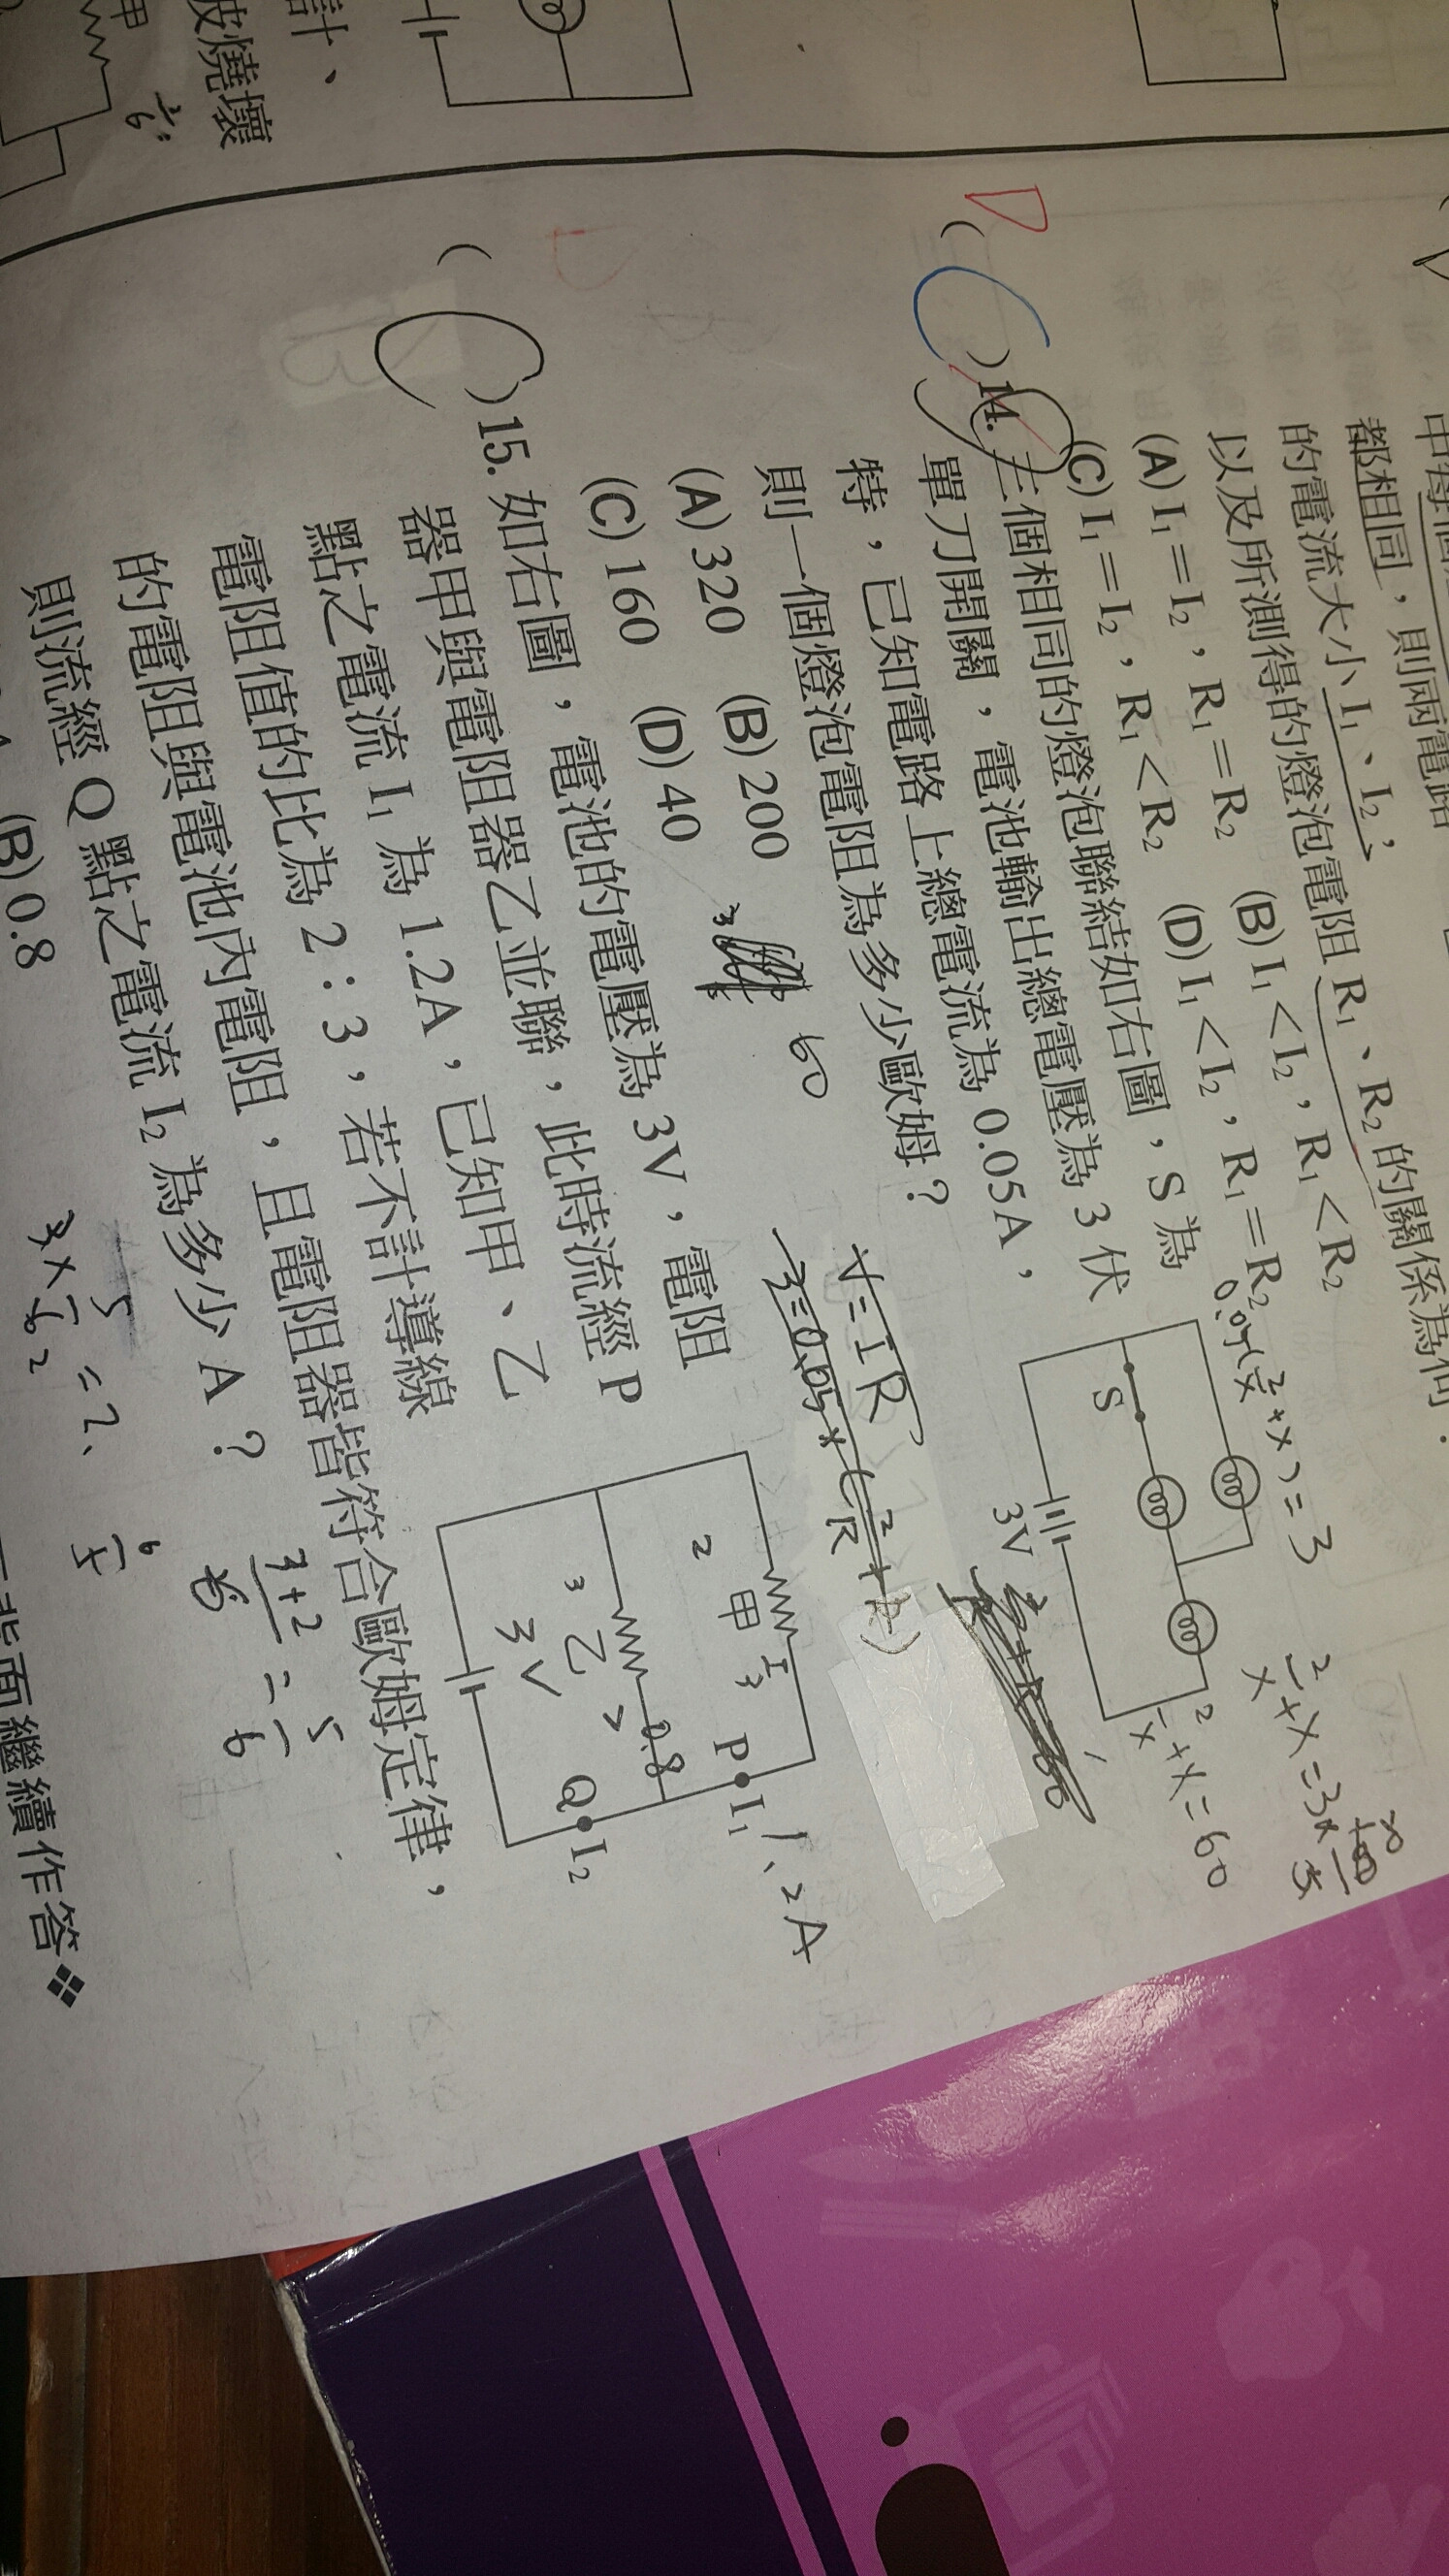 計、
被燒壞
甲
中每
都相同，則兩電路
的電流大小I₁、I₂，
以及所測得的燈泡電阻R₁、R₂的關係為何？
(A) I₁＝I₂，R₁＝R₂ (B) I₁＜I₂，R₁＜R₂
(C) I₁＝I₂，R₁＜R₂ (D) I₁＜I₂，R₁＝R₂
D
( C )14. 三個相同的燈泡聯結如右圖，S為
單刀開關，電池輸出總電壓為3伏
特，已知電路上總電流為0.05A，
則一個燈泡電阻為多少歐姆？
(A) 320 (B) 200
(C) 160 (D) 40
S
3V
60
V=IR
3=0.05×(2/R+R)
0.05(2/x+x)=3
2/x+x=60
D
( C )15. 如右圖，電池的電壓為3V，電阻
器甲與電阻器乙並聯，此時流經P
點之電流I₁為1.2A，已知甲、乙
電阻值的比為2：3，若不計導線
的電阻與電池內電阻，且電阻器皆符合歐姆定律，
則流經Q點之電流I₂為多少A？
(B) 0.8
2
甲
I
3
3
乙
2
0.8
3V
P
I₁
1.2A
Q
I₂
3+2/6=5/6
3×5/6=2.
6/5
背面繼續作答❖